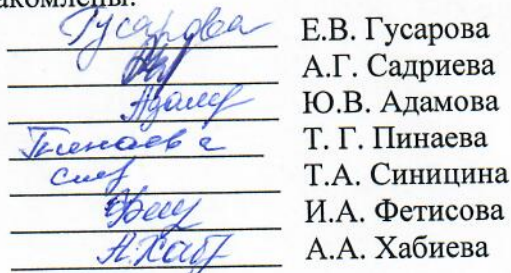 акомлены:
Гусарова Е.В. Гусарова
А.Г. Садриева
Адамов Ю.В. Адамова
Пинаева Т. Г. Пинаева
Син Т.А. Синицина
И.А. Фетисова
А.Хаб А.А. Хабиева